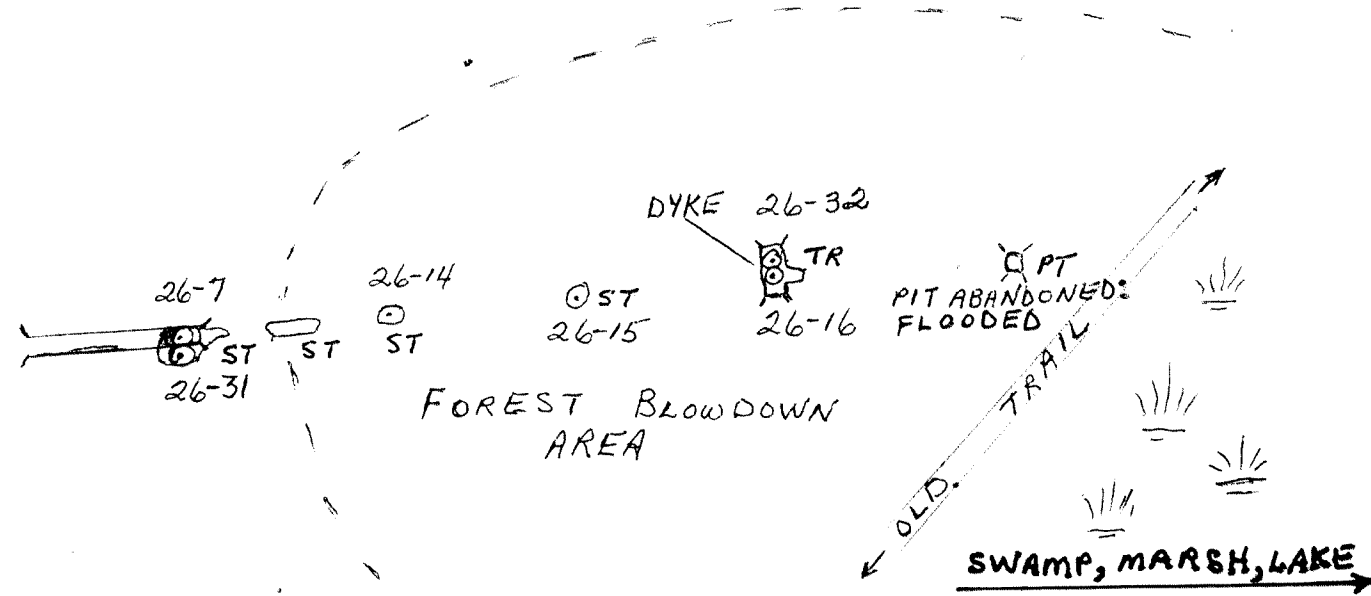 DYKE 26-32
TR
26-7
26-14
PT
ST
26-15
26-16
PIT ABANDONED:
FLOODED
ST
ST
ST
26-31
FOREST BLOWDOWN
AREA
OLD. TRAIL
SWAMP, MARSH, LAKE